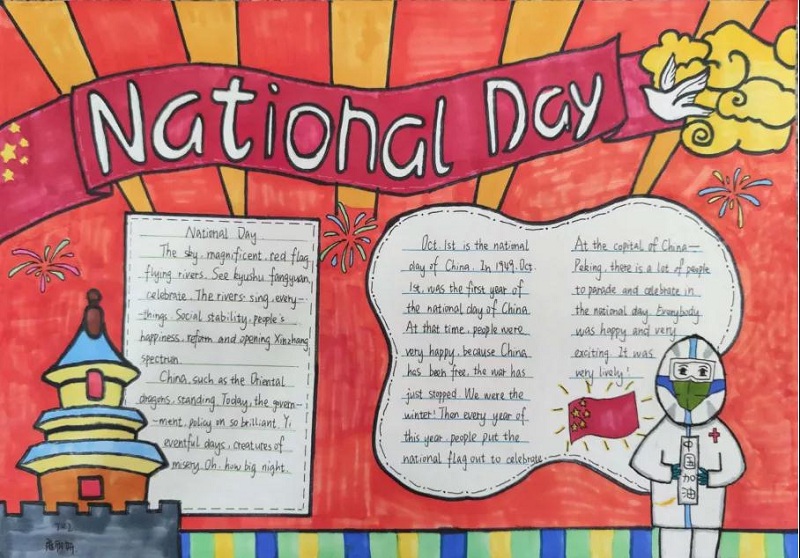 National Day
National Day
The sky, magnificent, red flag
flying rivers. See kyushu fangyuan,
celebrate. The rivers sing, every-
-things. Social stability, people's
happiness, reform and opening Xinzhang
spectrum.
China, such as the Oriental
dragons, standing. Today, the govern-
-ment, policy on so brilliant. Yi
eventful days, creatures of
misery. Oh, how big night.
Oct. 1st is the national
day of China. In 1949. Oct.
1st, was the first year of
the national day of China.
At that time, people were
very happy, because China
has been free, the war has
just stopped. We were the
winter! Then every year of
this year, people put the
national flag out to celebrate
At the capital of China—
Peking, there is a lot of people
to parade and celebrate in
the national day. Everybody
was happy and very
exciting. It was
very lively!
中国加油